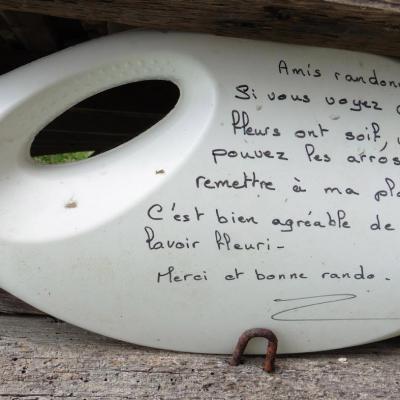 Amis randonn
Si vous voyez
fleurs ont soif,
pouvez les arros
remettre à ma pla
C'est bien agréable de
lavoir fleuri -
Merci et bonne rando.